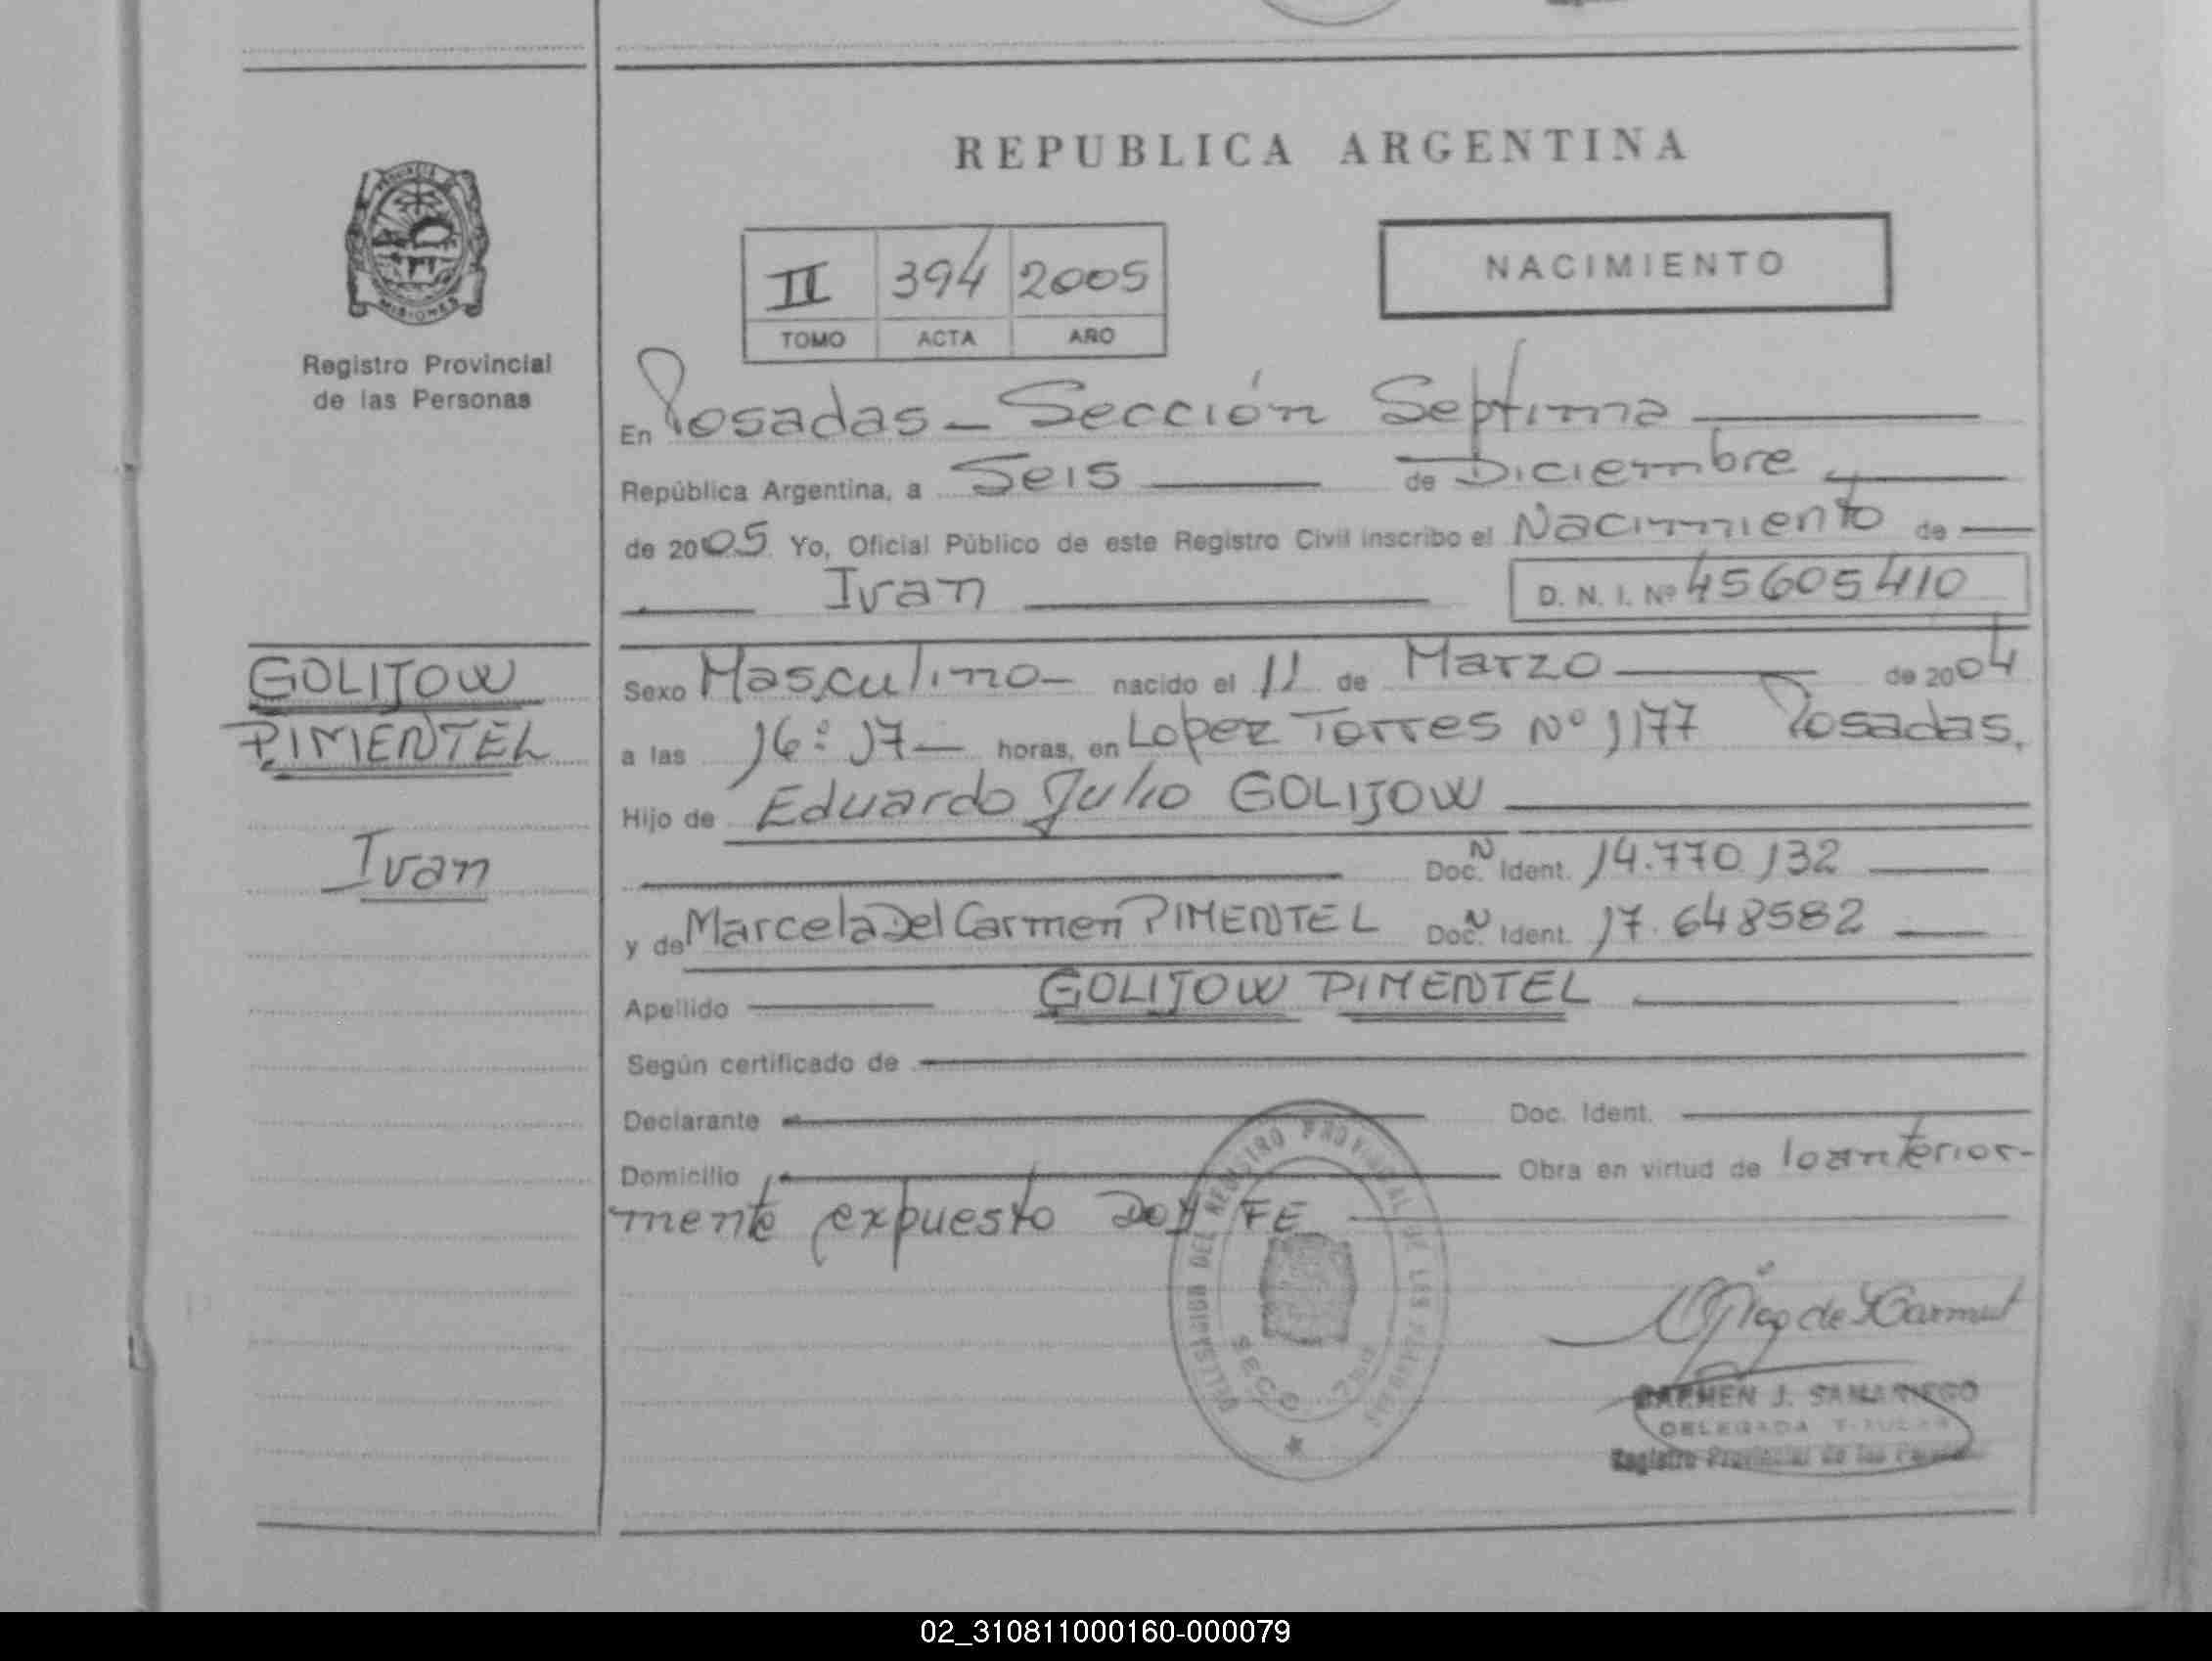 REPUBLICA ARGENTINA
II 394 2005
TOMO ACTA AÑO
NACIMIENTO
MISIONES
Registro Provincial
de las Personas
En Posadas - Sección Septima
República Argentina, a Seis de Diciembre
de 2005 Yo, Oficial Público de este Registro Civil inscribo el Nacimiento de
Ivan D. N. I. Nº 45605410
GOLIJOW
PIMENTEL
Ivan
Sexo Masculino - nacido el 11 de Marzo de 2004
a las 16:17 - horas, en Lopez Torres Nº 1177 Posadas.
Hijo de Eduardo Julio GOLIJOW
Doc. N Ident. 14.770.132
y de Marcela Del Carmen PIMENTEL Doc. N Ident. 17.648582
Apellido GOLIJOW PIMENTEL
Según certificado de
Declarante Doc. Ident.
Domicilio Obra en virtud de lo anterior-
mente expuesto DOY FE
DEL REGISTRO PROVINCIAL DE LAS
SECC
CARMEN J. SAMANIEGO
DELEGADA TITULAR
Registro Provincial de las
02_310811000160-000079